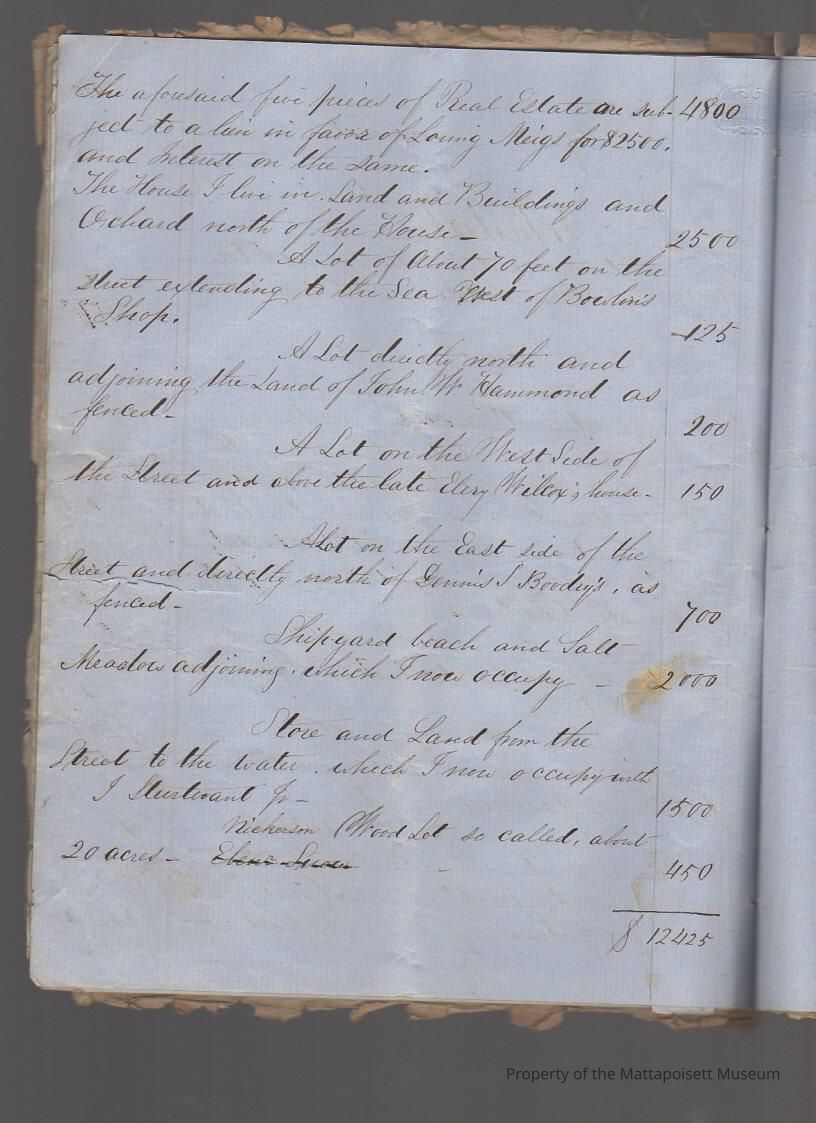 The aforesaid five pieces of Real Estate are sub- 4800
ject to a lien in favor of Loring Meigs for $2500.
and Interest on the same.
The House I live in. Land and Buildings and
Orchard north of the House - 2500
A Lot of About 70 feet on the
street extending to the Sea West of Bowlin's
Shop. 125
A Lot directly north and
adjoining the Land of John W Hammond as
fenced - 200
A Lot on the West Side of
the Street and above the late Elery Wilcox's house - 150
A Lot on the East side of the
Street and directly north of Dennis S Boodry's, as
fenced - 700
Shipyard beach and Salt
Meadow adjoining. which I now occupy - 2000
Store and Land from the
Street to the water. which I now occupy with
I Sturtevant Jr - 1500
Nickerson Wood Lot so called, about
20 acres - Eben'r Snow 450
$ 12425
Property of the Mattapoisett Museum